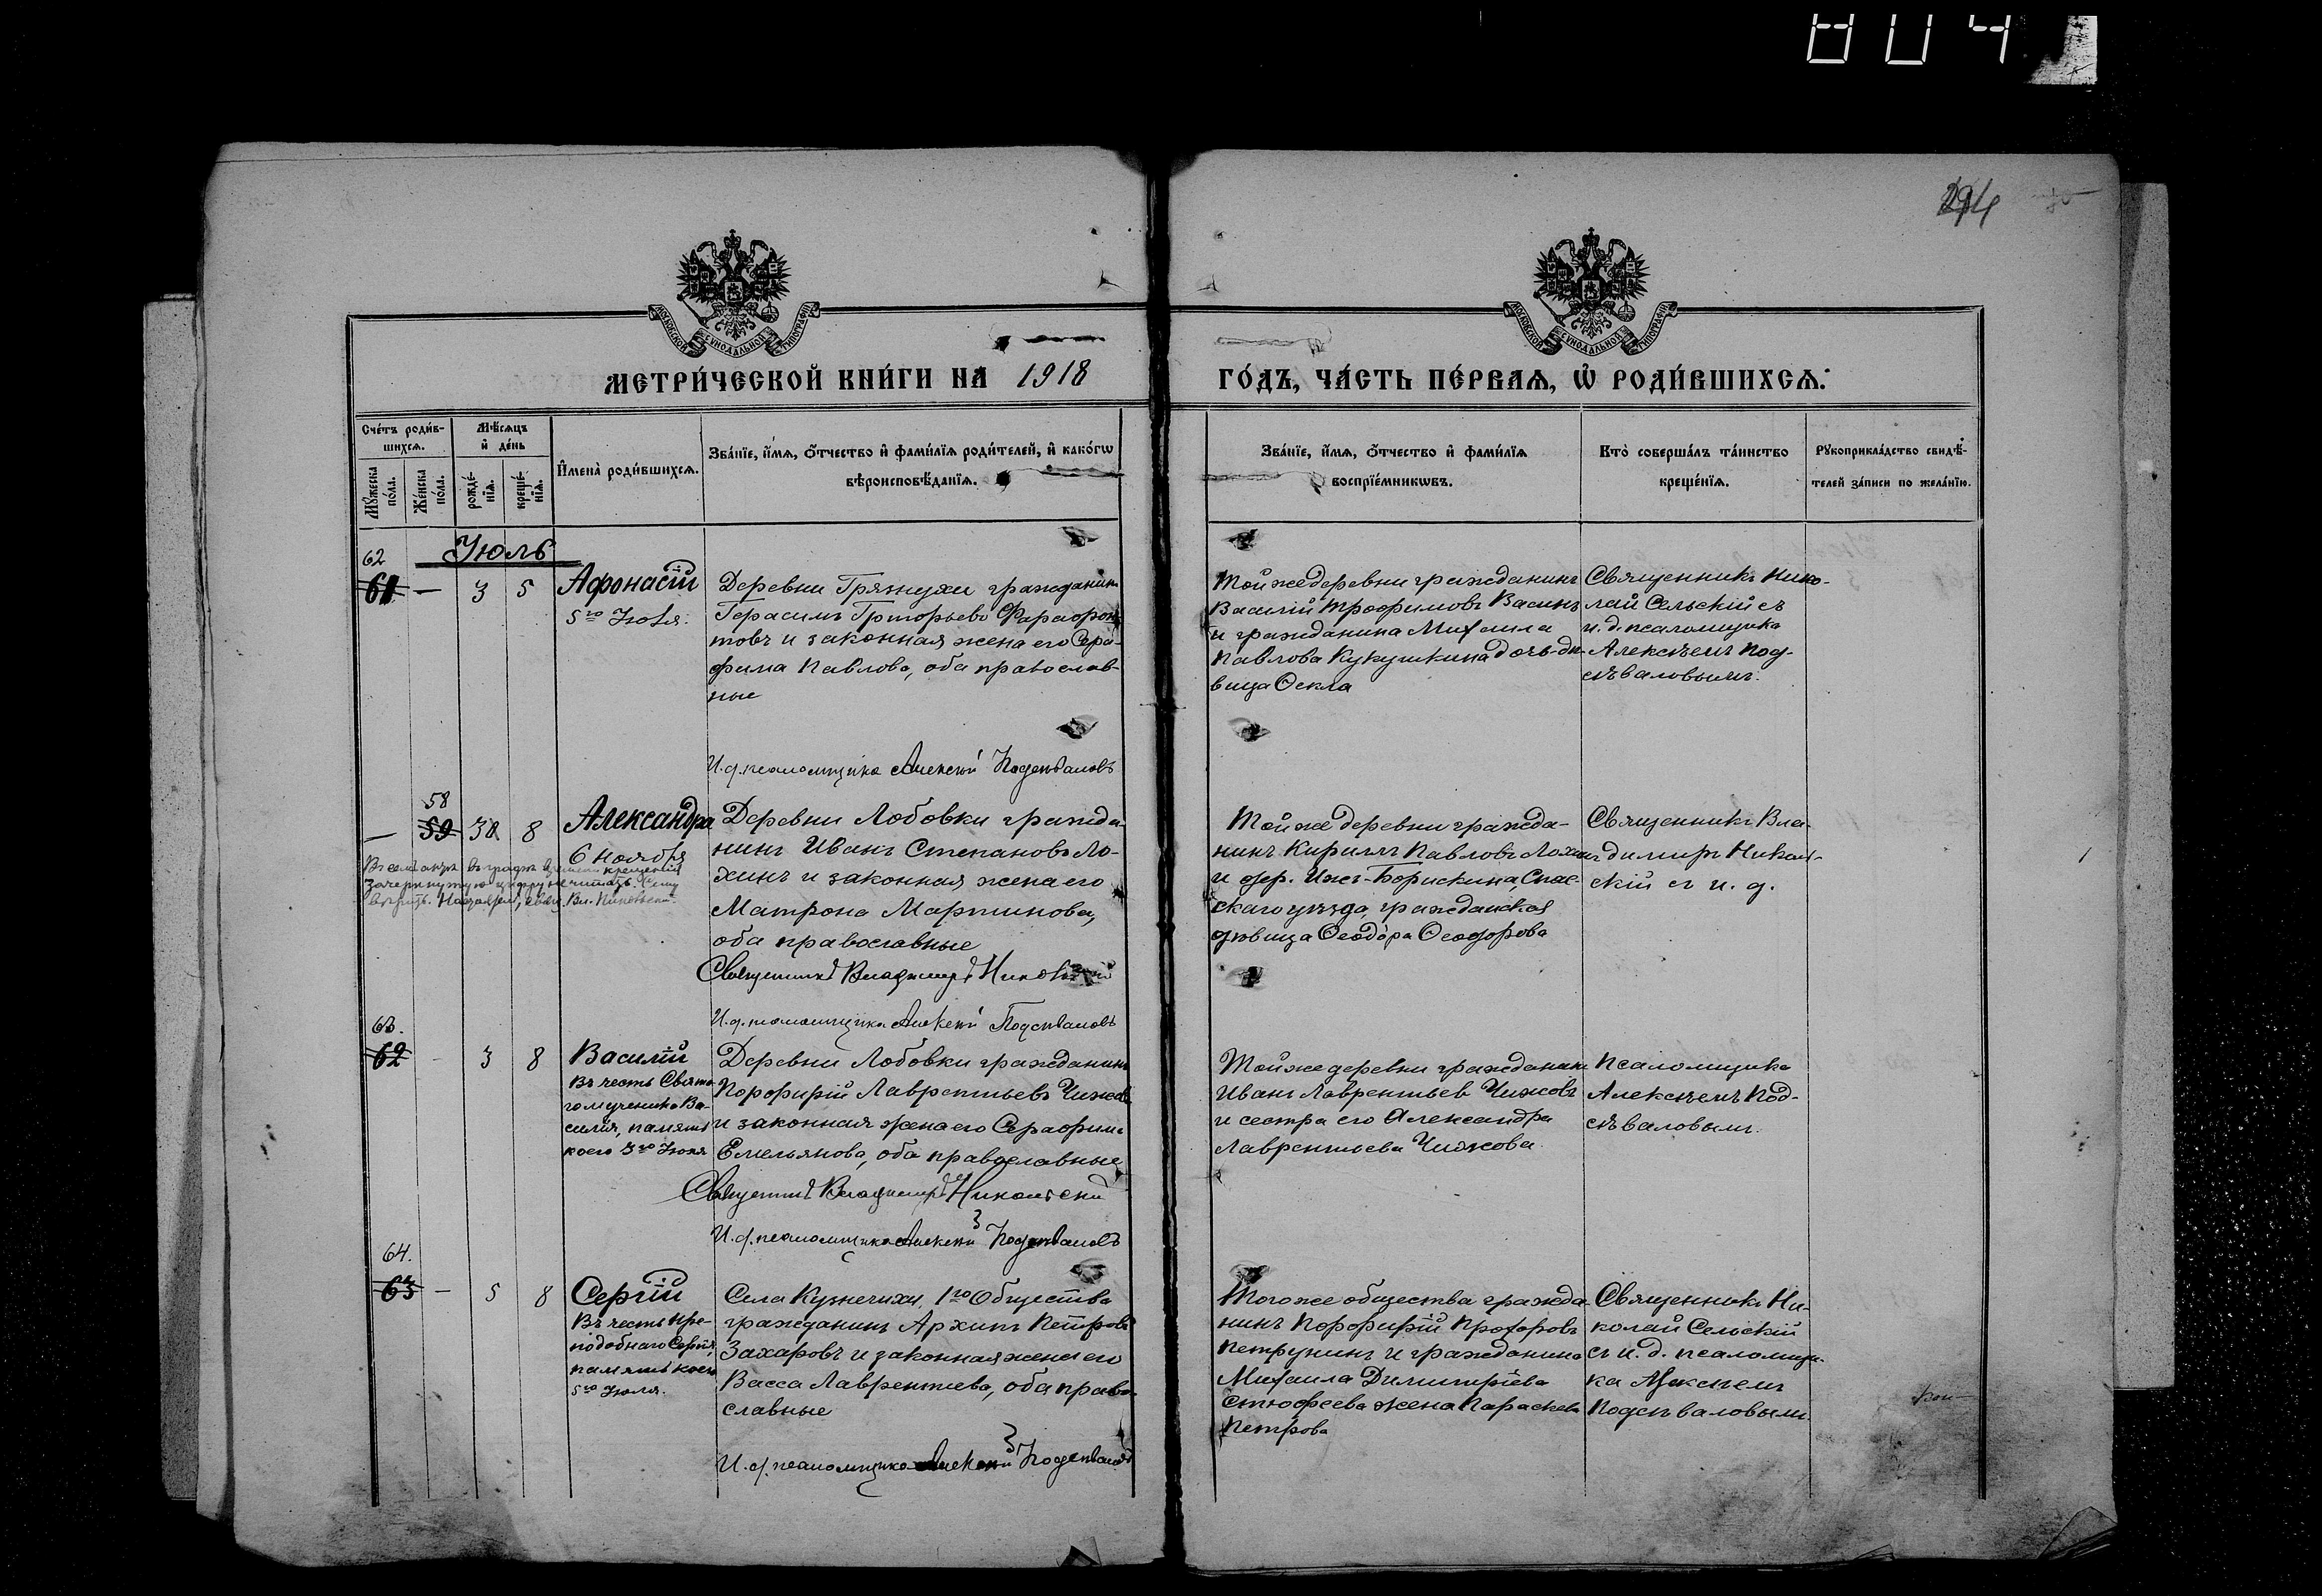 804
294
МОСКОВСКОЙ СѴНОДАЛЬНОЙ ТИПОГРАФІИ
МОСКОВСКОЙ СѴНОДАЛЬНОЙ ТИПОГРАФІИ
МЕТРИ́ЧЕСКОЙ КНИ́ГИ НА 1918
ГО́ДЪ, ЧА́СТЬ ПЕ́РВАѦ, Ѽ РОДИ́ВШИХСѦ.
Сче́тъ роди́в-
шихсѧ.
Мꙋ́жеска
по́ла.
Же́нска
по́ла.
Мѣ́сѧцъ
и҆ де́нь
рожде́-
нїѧ.
креще́-
нїѧ.
И҆мена̀ роди́вшихсѧ.
Зва́нїе, и҆́мѧ, ѻ҆́тчество и҆ фами́лїѧ роди́телей, и҆ како́гѡ
вѣроисповѣ́данїѧ.
Зва́нїе, и҆́мѧ, ѻ҆́тчество и҆ фами́лїѧ
воспрїе́мникѡвъ.
Кто̀ соверша́лъ та́инство
креще́нїѧ.
Рꙋкоприкла́дство свидѣ́-
телей за́писи по жела́нїю.
Іюль
62
61 — 3 5
Афонасій
5го Іюля.
Деревни Грязнухи гражданинъ
Герасимъ Григорьевъ
товъ и законная жена его Сера-
фима Павлова, оба православ-
ные
И. д. псаломщика Алексѣй Подсѣваловъ
Той же деревни гражданинъ
Василій Трофимовъ Васинъ
и гражданина Михаила
Павлова Кукушкина дочь дѣ-
вица Ѳекла
Священникъ Нико-
лай Сельскій съ
и. д. псаломщика
Алексѣемъ Под-
сѣваловымъ.
58
— 59 8
Александра
6 Ноября
Деревни Лобовки гражда-
нинъ Иванъ Степановъ Ло-
хинъ и законная жена его
Матрона Мартинова,
оба православные
Священникъ Владимиръ Никольскій
И. д. псаломщика Алексѣй Подсѣваловъ
Той же деревни гражда-
нинъ Кириллъ Павловъ Лохинъ
и дер. Борискина, Спас-
скаго уѣзда, гражданская
дѣвица Ѳеодора Ѳеодорова
Священникъ Вла-
димиръ Николь-
скій съ и. д.
63.
62 - 3 8
Василій
Въ честь Свято-
гомученика Ва-
силія, память
коего 3го Іюля
Деревни Лобовки гражданинъ
Порфирій Лаврентьевъ Чижовъ
и законная жена его Серафима
Емельянова, оба православные
Священникъ Владимиръ Никольскій
И. д. псаломщика Алексѣй Подсѣваловъ
Той же деревни гражданинъ
Иванъ Лаврентьевъ Чижовъ
и сестра его Александра
Лаврентьева Чижова
псаломщика
Алексѣемъ Под-
сѣваловымъ.
64.
63 — 5 8
Сергій
Въ честь Пре-
подобнаго Сергія,
память коего
5го Іюля.
Села Кузнечихи, 1го Общества
гражданинъ Архипъ Петровъ
Захаровъ и законная жена его
Васса Лаврентьева, оба право-
славные
И. д. псаломщика Алексѣй Подсѣваловъ
Того же общества гражда-
нинъ Порфирій Прохоровъ
Петрунинъ и гражданина
Михаила Димитріева
жена Параскева
Петрова
Священникъ Ни-
колай Сельскій
съ и. д. псаломщи-
ка Алексѣемъ
Подсѣваловымъ.